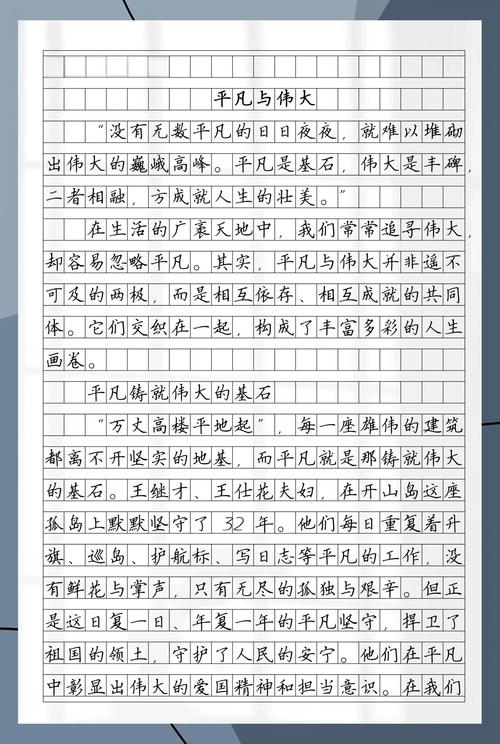 平凡与伟大
“没有无数平凡的日日夜夜，就难以堆砌
出伟大的巍峨高峰。平凡是基石，伟大是丰碑，
二者相融，方成就人生的壮美。”
在生活的广袤天地中，我们常常追寻伟大，
却容易忽略平凡。其实，平凡与伟大并非遥不
可及的两极，而是相互依存、相互成就的共同
体。它们交织在一起，构成了丰富多彩的人生
画卷。
平凡铸就伟大的基石
“万丈高楼平地起”，每一座雄伟的建筑
都离不开坚实的地基，而平凡就是那铸就伟大
的基石。王继才、王仕花夫妇，在开山岛这座
孤岛上默默坚守了 32 年。他们每日重复着升
旗、巡岛、护航标、写日志等平凡的工作，没
有鲜花与掌声，只有无尽的孤独与艰辛。但正
是这日复一日、年复一年的平凡坚守，捍卫了
祖国的领土，守护了人民的安宁。他们在平凡
中彰显出伟大的爱国精神和担当意识。在我们